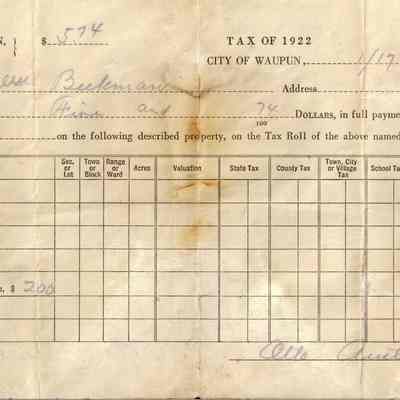 N. } $ 5 74 TAX OF 1922
CITY OF WAUPUN, 1/17
Beekman Address
Five and 74/100 DOLLARS, in full payme
on the following described property, on the Tax Roll of the above named
Sec. or Lot Town or Block Range or Ward Acres Valuation State Tax County Tax Town, City or Village Tax School Ta
. $ 200
Otto